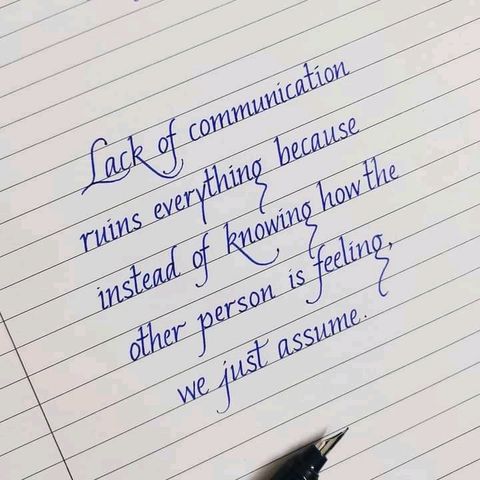 Lack of communication
ruins everything because
instead of knowing how the
other person is feeling,
we just assume.